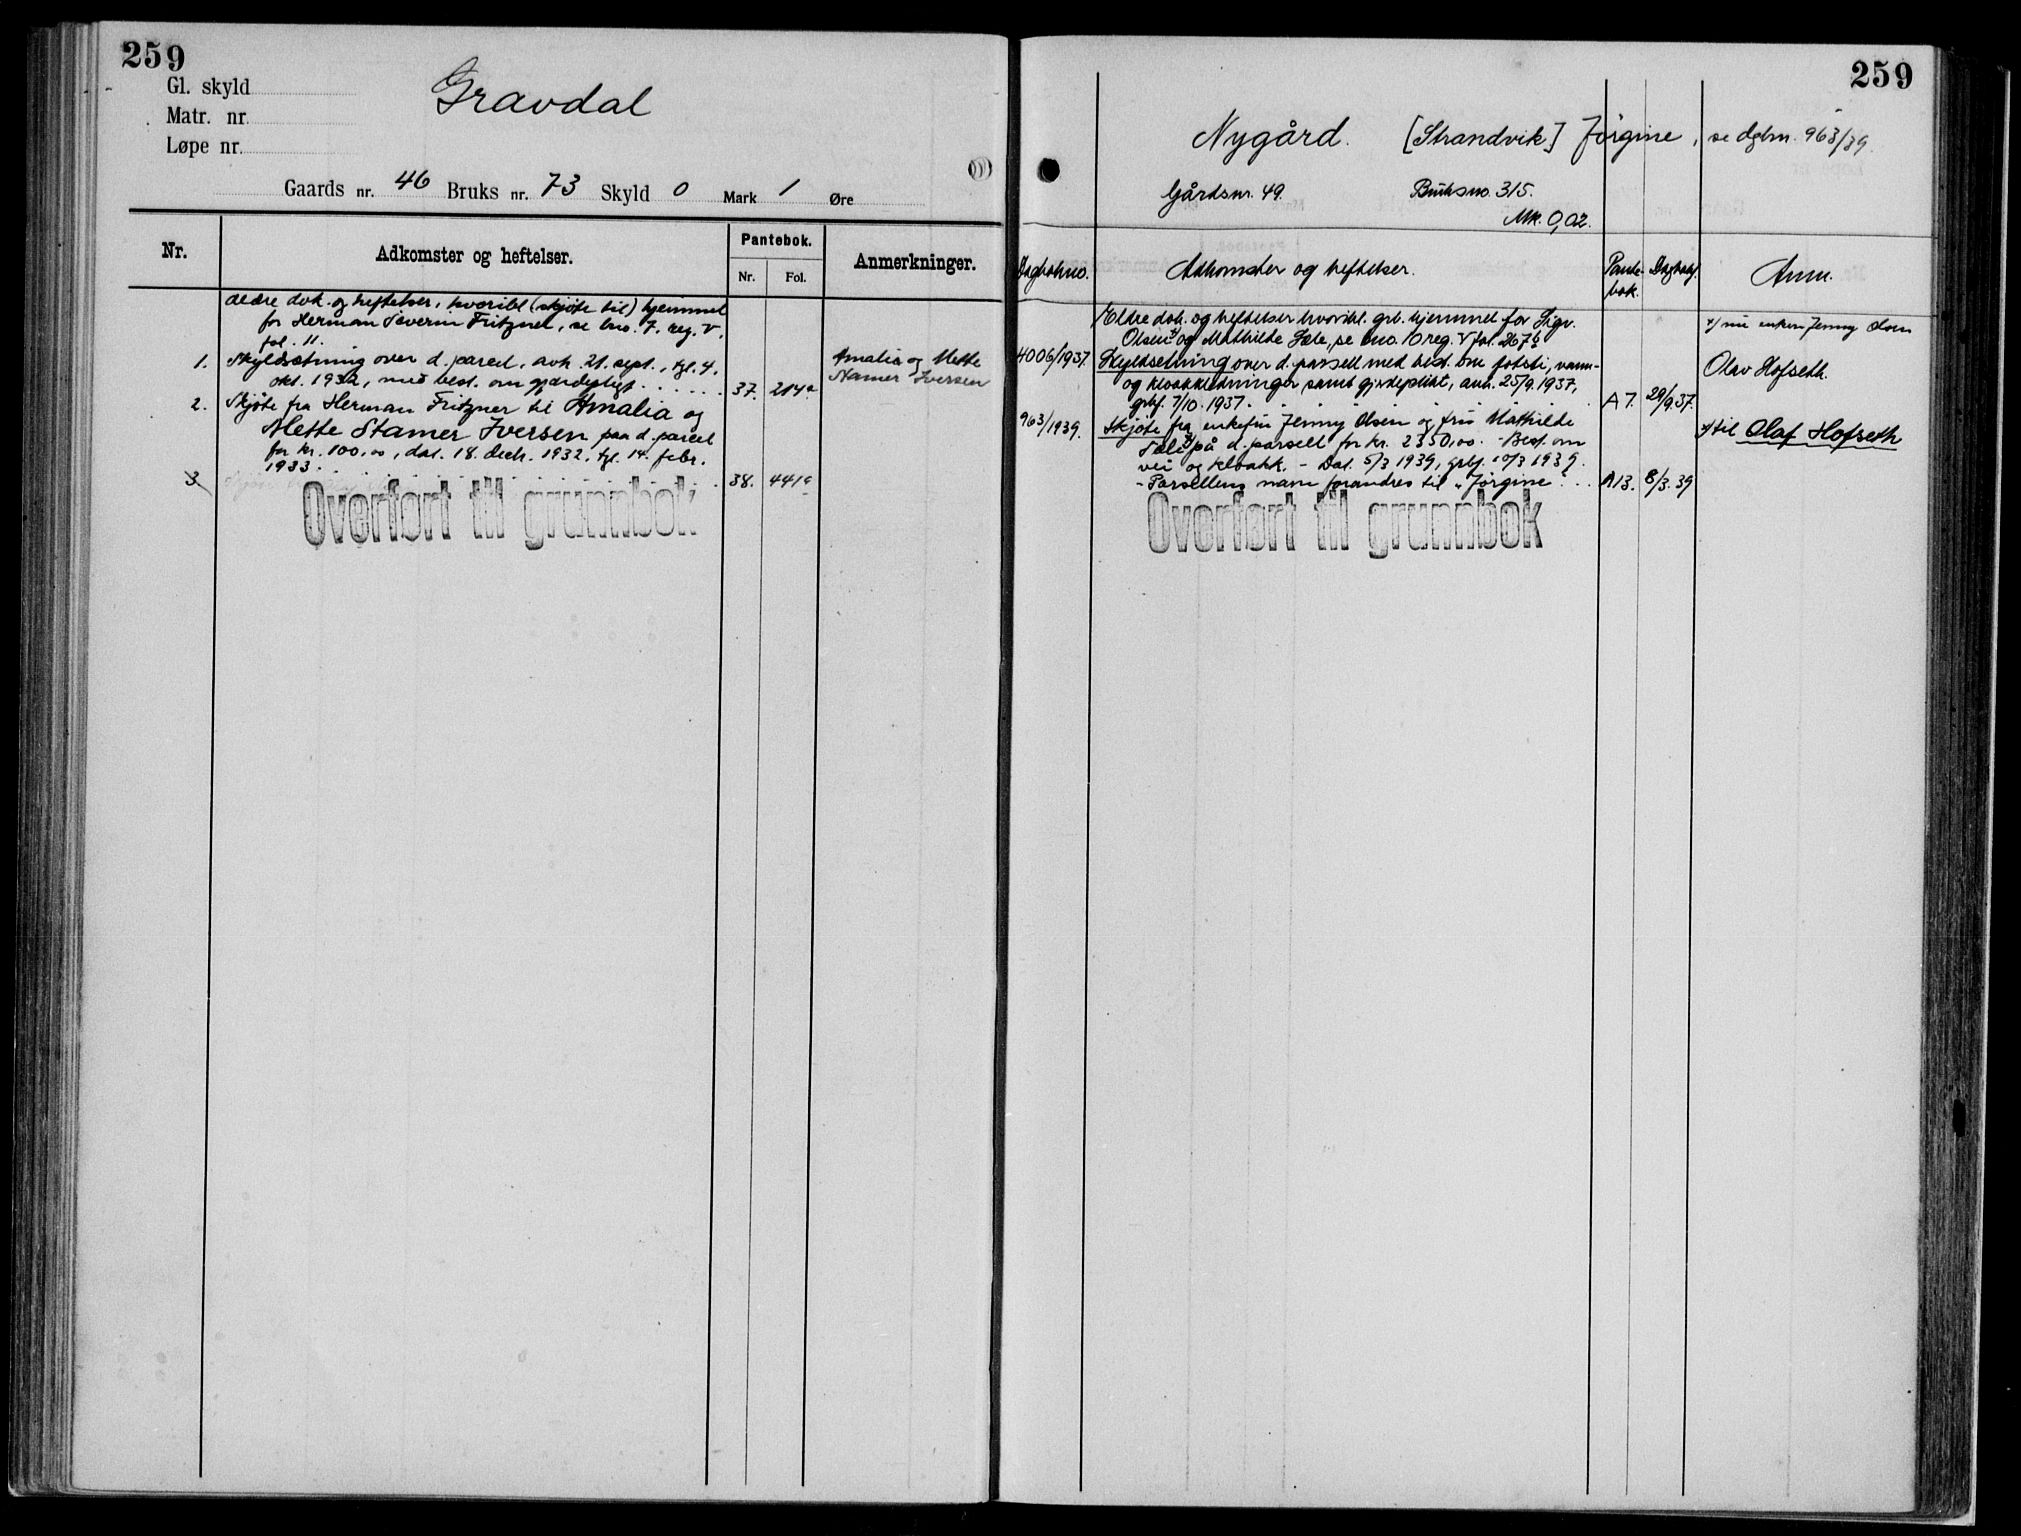 259
Gl. skyld
Matr. nr.
Løpe nr.
Gravdal
Gaards nr. 46 Bruks nr. 73 Skyld 0 Mark 1 Øre
Nr. Adkomster og heftelser. Pantebok. Nr. Fol. Anmerkninger.
Ældre dok. og heftelser, hvoribl. (skjøte til) hjemmel
for Herman Severin Fritzner, se bno. 7, reg. V,
fol. 11.
1. Skyldsætning over d. parcel, avh. 21. sept., tgl. 4. Amalia og Mette
okt. 1932, med best. om gjærdepligt . . . . . 37. 214a Stamer Iversen
2. Skjøte fra Herman Fritzner til Amalia og
Mette Stamer Iversen paa d. parcel
for kr. 100,00, dat. 18. decbr. 1932, tgl. 14. febr.
1933. . . . 38. 441a
3.
Overført til grunnbok
259
Nygård. [Strandvik] Jørgine, se dgbn. 963/39.
Gårdsnr. 49. Bruksno. 315.
Mk. 0,02.
Dagbokno. Adkomster og heftelser. Pantebok. Dagbokf. Anm.
Eldre dok. og heftelser hvoribl. grb. hjemmel for Sigv. x) nu enken Jenny Olsen
Olsen x) og Mathilde Sæle, se bno. 10 reg. V fol. 267b
4006/1937. Skyldsetning over d. parsell med best. om fotsti, vann- Olav Hofseth.
og kloakkledninger, samt gjerdeplikt, avh. 25/9. 1937,
grbf. 7/10. 1937. . . . . . A 7. 29/9.37.
963/1939. Skjøte fra enkefru Jenny Olsen og fru Mathilde x) til Olaf Hofseth
Sæle x) på d. parsell for kr. 2350,00. - Best. om
vei og kloakk. - Dat. 5/3 1939, grbf. 10/3 1939.
- Parsellens navn forandres til "Jørgine". . . A 13. 8/3. 39
Overført til grunnbok